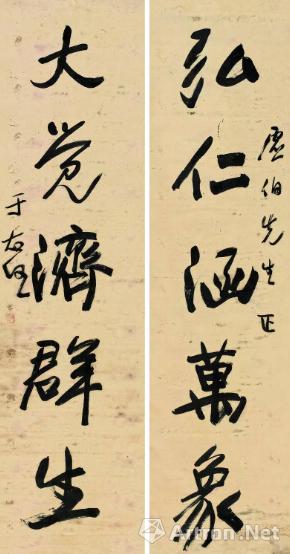 弘仁涵萬象
虚伯先生正
大觉濟群生
于右任
Artron.Net